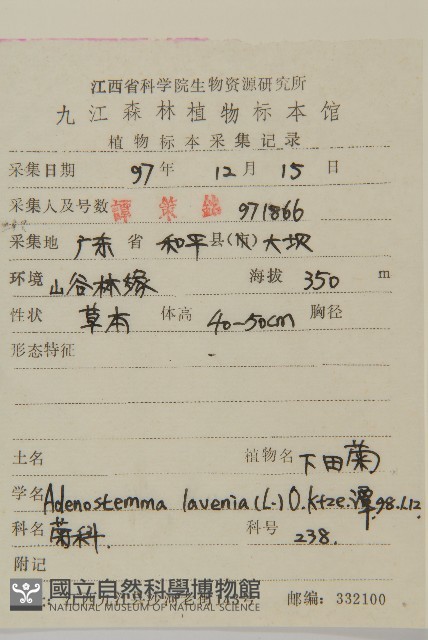 江西省科学院生物资源研究所
九江森林植物标本馆
植物标本采集记录
采集日期 97年 12月 15日
采集人及号数 譚策銘 971866
采集地 广东省 和平县(市) 大坝
环境 山谷林缘 海拔 350 m
性状 草本 体高 40-50cm 胸径
形态特征
土名 植物名 下田菊
学名 Adenostemma lavenia (L.) O. Ktze. 潭 98.1.12
科名 菊科. 科号 238.
附记
國立自然科學博物館
NATIONAL MUSEUM OF NATURAL SCIENCE
邮编: 332100